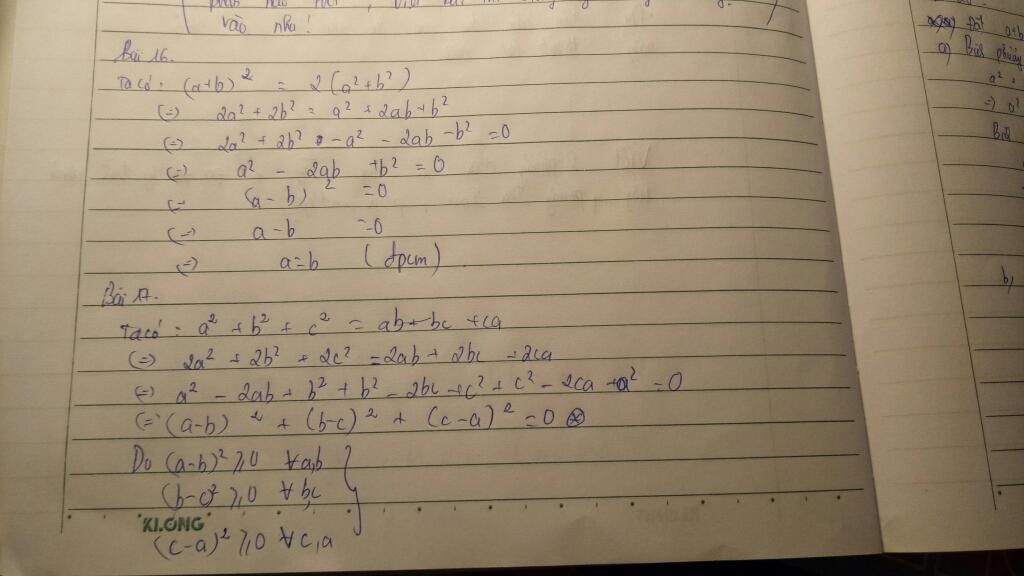 vào nha!
Bài 16.
Ta có: (a+b)² = 2(a²+b²)
(=) 2a² + 2b² = a² + 2ab + b²
(=) 2a² + 2b² - a² - 2ab - b² = 0
(=) a² - 2ab + b² = 0
(=) (a-b)² = 0
(=) a-b = 0
(=) a=b (đpcm)
Bài 17.
Ta có: a² + b² + c² = ab + bc + ca
(=) 2a² + 2b² + 2c² = 2ab + 2bc + 2ca
(=) a² - 2ab + b² + b² - 2bc + c² + c² - 2ca + a² = 0
(=) (a-b)² + (b-c)² + (c-a)² = 0 ⊗
Do (a-b)² ≥ 0 ∀a,b
(b-c)² ≥ 0 ∀b,c
KLONG
(c-a)² ≥ 0 ∀c,a
Đặt a+b
a) Bình phương
a² +
=) a²
b,